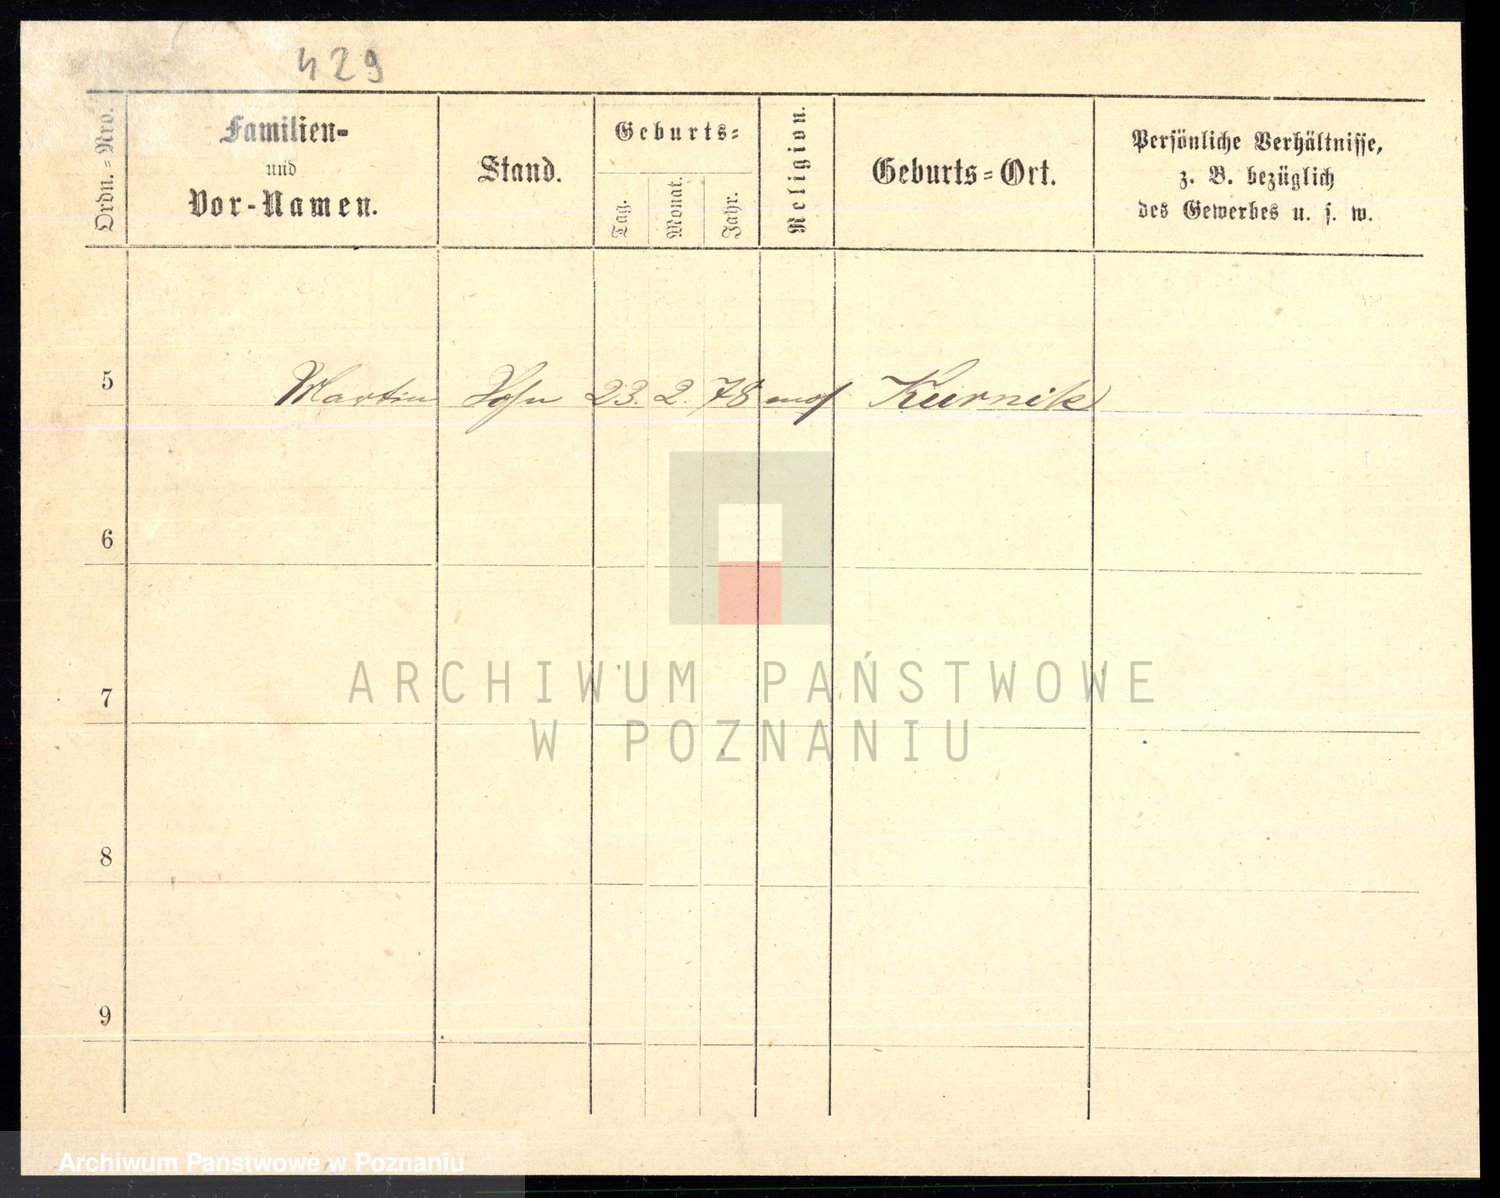 429
Ordn.=Nro.
Familien-
und
Vor-Namen.
Stand.
Geburts=
Tag.
Monat.
Jahr.
Religion.
Geburts=Ort.
Persönliche Verhältnisse,
z. B. bezüglich
des Gewerbes u. s. w.
5 Martin Sohn 23. 2. 78 mos Kurnik
6
7
8
9
ARCHIWUM PAŃSTWOWE
W POZNANIU
Archiwum Państwowe w Poznaniu